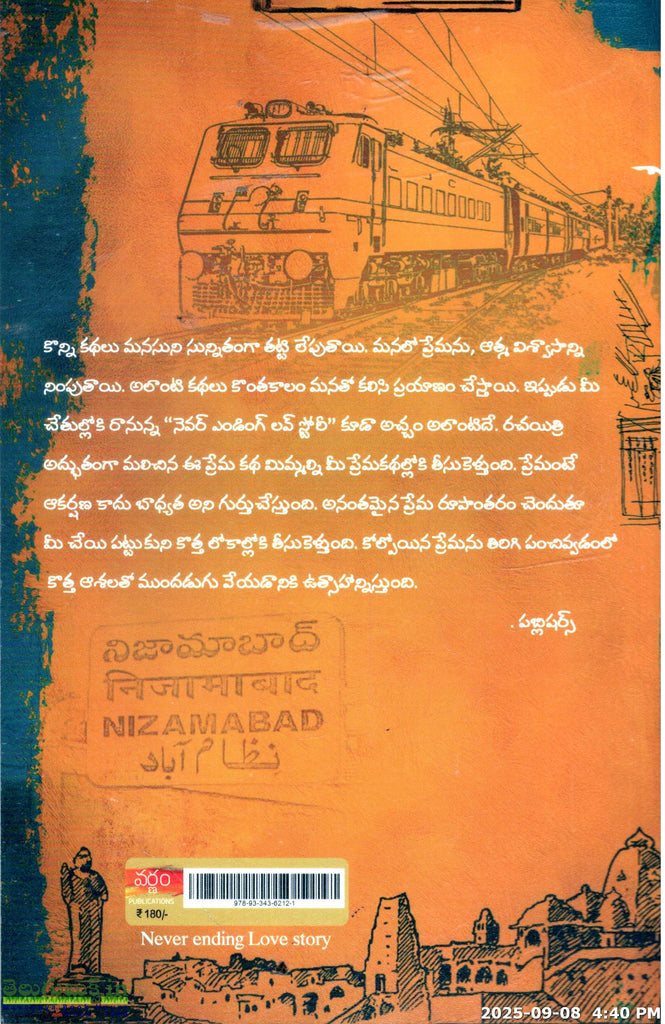 కొన్ని కథలు మనసుని సున్నితంగా తట్టి లేపుతాయి. మనలో ప్రేమను, ఆత్మ విశ్వాసాన్ని
నింపుతాయి. అలాంటి కథలు కొంతకాలం మనతో కలిసి ప్రయాణం చేస్తాయి. ఇప్పుడు మీ
చేతుల్లోకి రానున్న “నెవర్ ఎండింగ్ లవ్ స్టోరీ” కూడా అచ్చం అలాంటిదే. రచయిత్రి
అద్భుతంగా మలిచిన ఈ ప్రేమ కథ మిమ్మల్ని మీ ప్రేమకథల్లోకి తీసుకెళ్తుంది. ప్రేమంటే
ఆకర్షణ కాదు బాధ్యత అని గుర్తుచేస్తుంది. అనంతమైన ప్రేమ రూపాంతరం చెందుతూ
మీ చేయి పట్టుకుని కొత్త లోకాల్లోకి తీసుకెళ్తుంది. కోల్పోయిన ప్రేమను తిలగి పంచివ్వడంలో
కొత్త ఆశలతో ముందడుగు వేయడానికి ఉత్సాహాన్నిస్తుంది.
. పబ్లిషర్స్
నిజామాబాద్
निजामाबाद
NIZAMABAD
نظام آباد
వర్ణం
PUBLICATIONS
₹ 180/-
978-93-343-6212-1
Never ending Love story
2025-09-08 4:40 PM